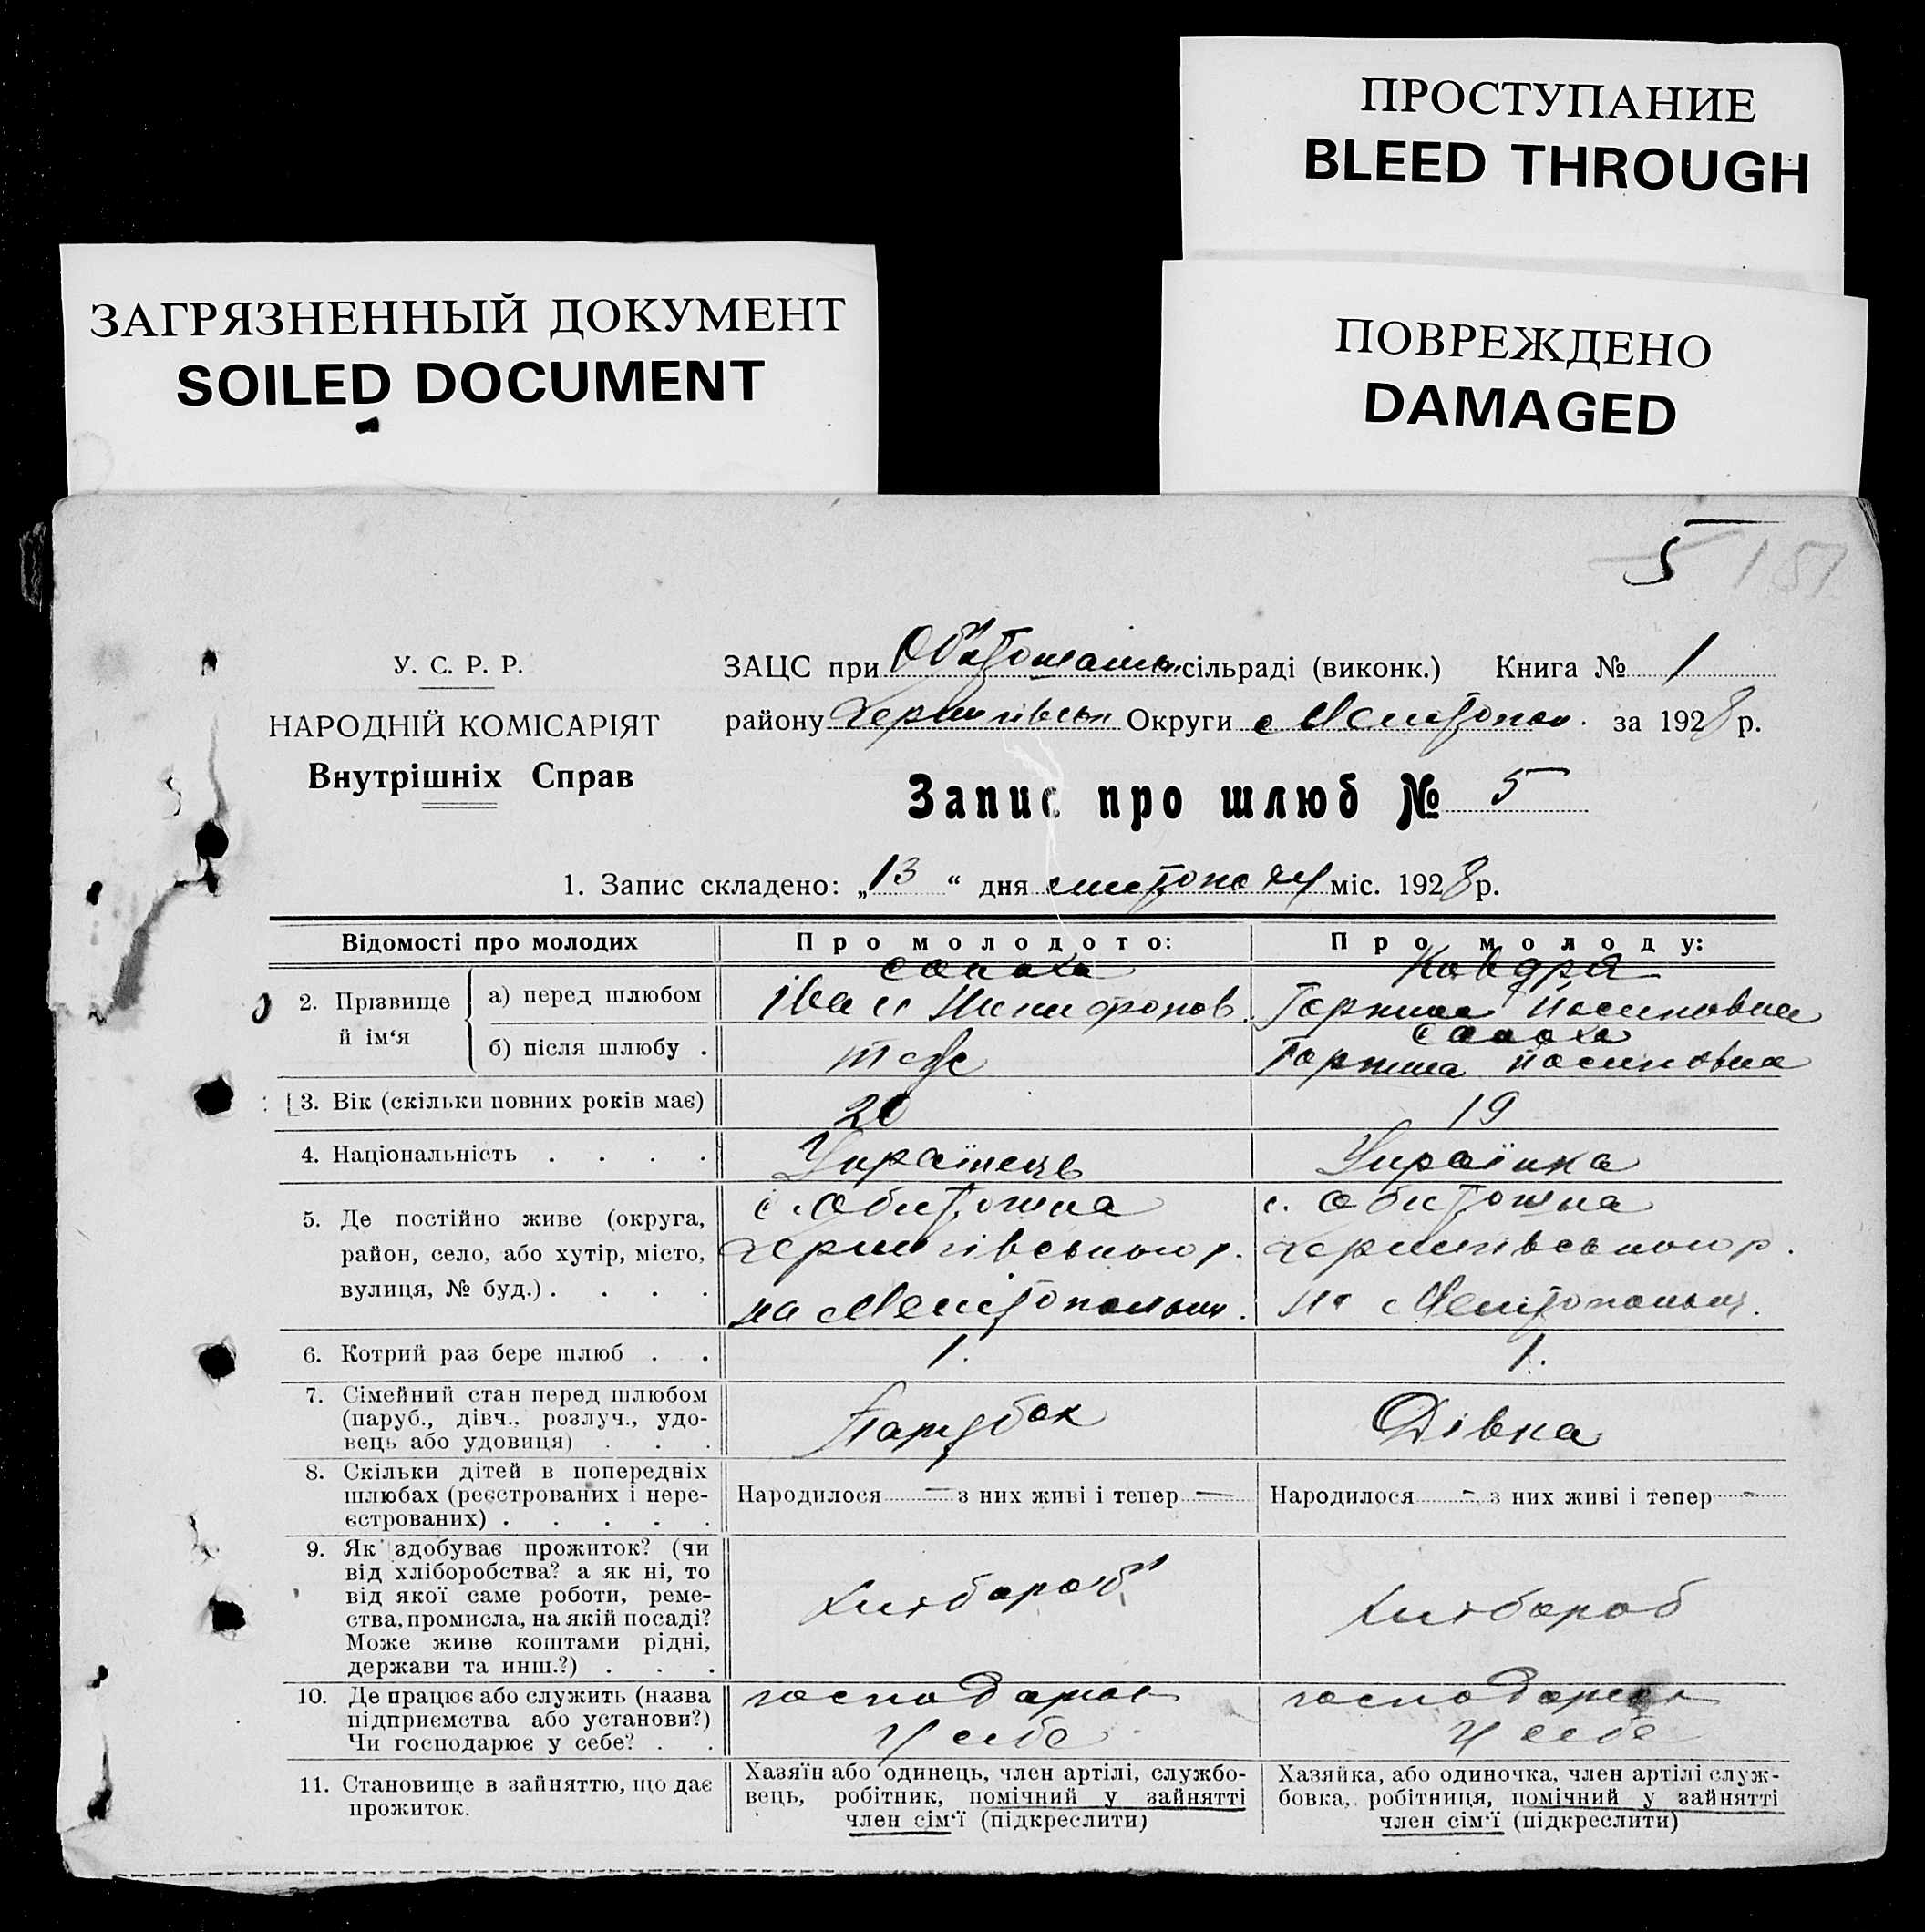 ПРОСТУПАНИЕ
BLEED THROUGH
ЗАГРЯЗНЕННЫЙ ДОКУМЕНТ
SOILED DOCUMENT
ПОВРЕЖДЕНО
DAMAGED
5 151
У. С. Р. Р.
НАРОДНІЙ КОМІСАРІЯТ
Внутрішніх Справ
ЗАЦС при сільраді (виконк.) Книга № 1
району Округи Мелітопол. за 1928 р.
Запис про шлюб № 5
1. Запис складено: „13“ дня листопада міс. 1928 р.
Відомості про молодих
Про молодого:
Про молоду:
2. Прізвище й ім‘я
а) перед шлюбом
Сапоха
Іван Никифоров.
Ковдря
Горпина Йосиповна
б) після шлюбу .
теж
Сапоха
Горпина Йосиповна
3. Вік (скільки повних років має)
20
19
4. Національність . . . .
Українець
Українка
5. Де постійно живе (округа,
район, село, або хутір, місто,
вулиця, № буд.) . . . .
с. Обиточна
р.
на Мелітопольщ.
с. Обиточна
р.
на Мелітопольщ.
6. Котрий раз бере шлюб . .
1.
1.
7. Сімейний стан перед шлюбом
(паруб., дівч.. розлуч., удо-
вець або удовиця) . . .
Парубок
Дівка
8. Скільки дітей в попередніх
шлюбах (реєстрованих і нере-
єстрованих) . . . . .
Народилося — з них живі і тепер —
Народилося - з них живі і тепер -
9. Як здобуває прожиток? (чи
від хліборобства? а як ні, то
від якої саме роботи, реме-
ства, промисла, на якій посаді?
Може живе коштами рідні,
держави та инш.?) . . .
Хлібороб
Хлібороб
10. Де працює або служить (назва
підприємства або установи?)
Чи господарює у себе? . .
господарює
у себе
господарює
у себе
11. Становище в зайняттю, що дає
прожиток.
Хазяїн або одинець, член артілі, службо-
вець, робітник, помічний у зайнятті
член сім‘ї (підкреслити)
Хазяйка, або одиночка, член артілі служ-
бовка, робітниця, помічний у зайнятті
член сім‘ї (підкреслити)